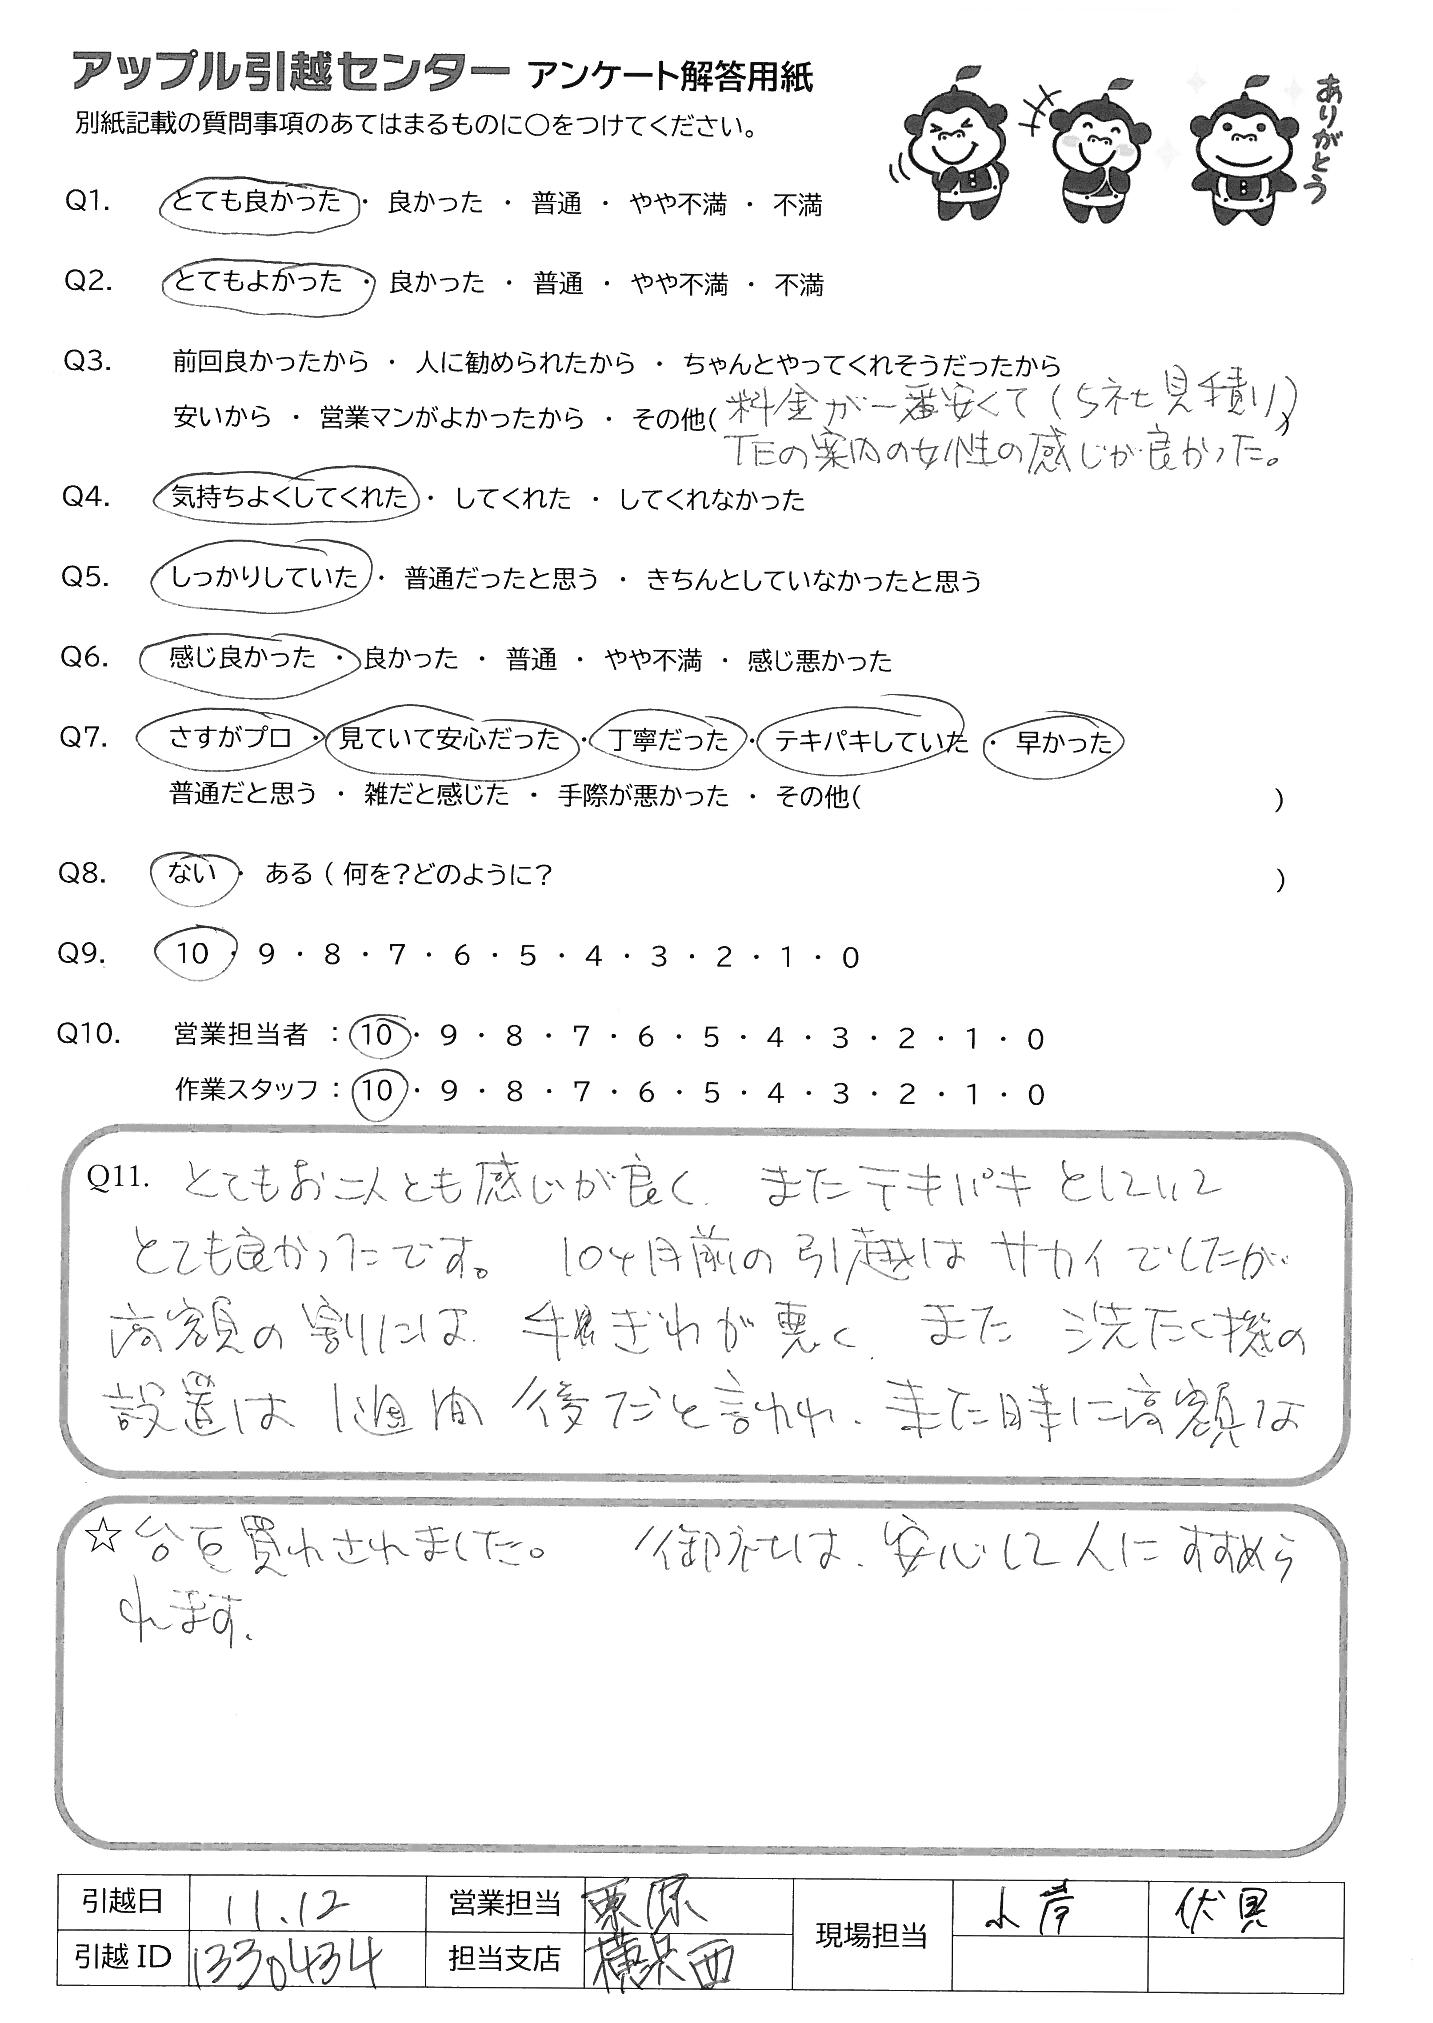 アップル引越センター アンケート解答用紙
別紙記載の質問事項のあてはまるものに○をつけてください。
ありがとう
Q1. とても良かった ・ 良かった ・ 普通 ・ やや不満 ・ 不満
Q2. とてもよかった ・ 良かった ・ 普通 ・ やや不満 ・ 不満
Q3. 前回良かったから ・ 人に勧められたから ・ ちゃんとやってくれそうだったから
安いから ・ 営業マンがよかったから ・ その他( 料金が一番安くて(5社見積り)
TEの案内の女性の感じが良かった。
Q4. 気持ちよくしてくれた ・ してくれた ・ してくれなかった
Q5. しっかりしていた ・ 普通だったと思う ・ きちんとしていなかったと思う
Q6. 感じ良かった ・ 良かった ・ 普通 ・ やや不満 ・ 感じ悪かった
Q7. さすがプロ ・ 見ていて安心だった ・ 丁寧だった ・ テキパキしていた ・ 早かった
普通だと思う ・ 雑だと感じた ・ 手際が悪かった ・ その他( )
Q8. ない ・ ある ( 何を?どのように? )
Q9. 10 ・ 9 ・ 8 ・ 7 ・ 6 ・ 5 ・ 4 ・ 3 ・ 2 ・ 1 ・ 0
Q10. 営業担当者 : 10 ・ 9 ・ 8 ・ 7 ・ 6 ・ 5 ・ 4 ・ 3 ・ 2 ・ 1 ・ 0
作業スタッフ : 10 ・ 9 ・ 8 ・ 7 ・ 6 ・ 5 ・ 4 ・ 3 ・ 2 ・ 1 ・ 0
Q11. とてもお二人とも感じが良く、またテキパキとしていて
とても良かったです。 10ヶ月前の引越はサカイでしたが、
高額の割には、手際ぎわが悪く、また 洗たく機の
設置は 1週間後だと言われ、また時に高額な
☆ 台を買わされました。 御社は、安心して人にすすめら
れます。
引越日 11.12 営業担当 栗原 現場担当 伏見
引越 ID 1330434 担当支店 横浜西